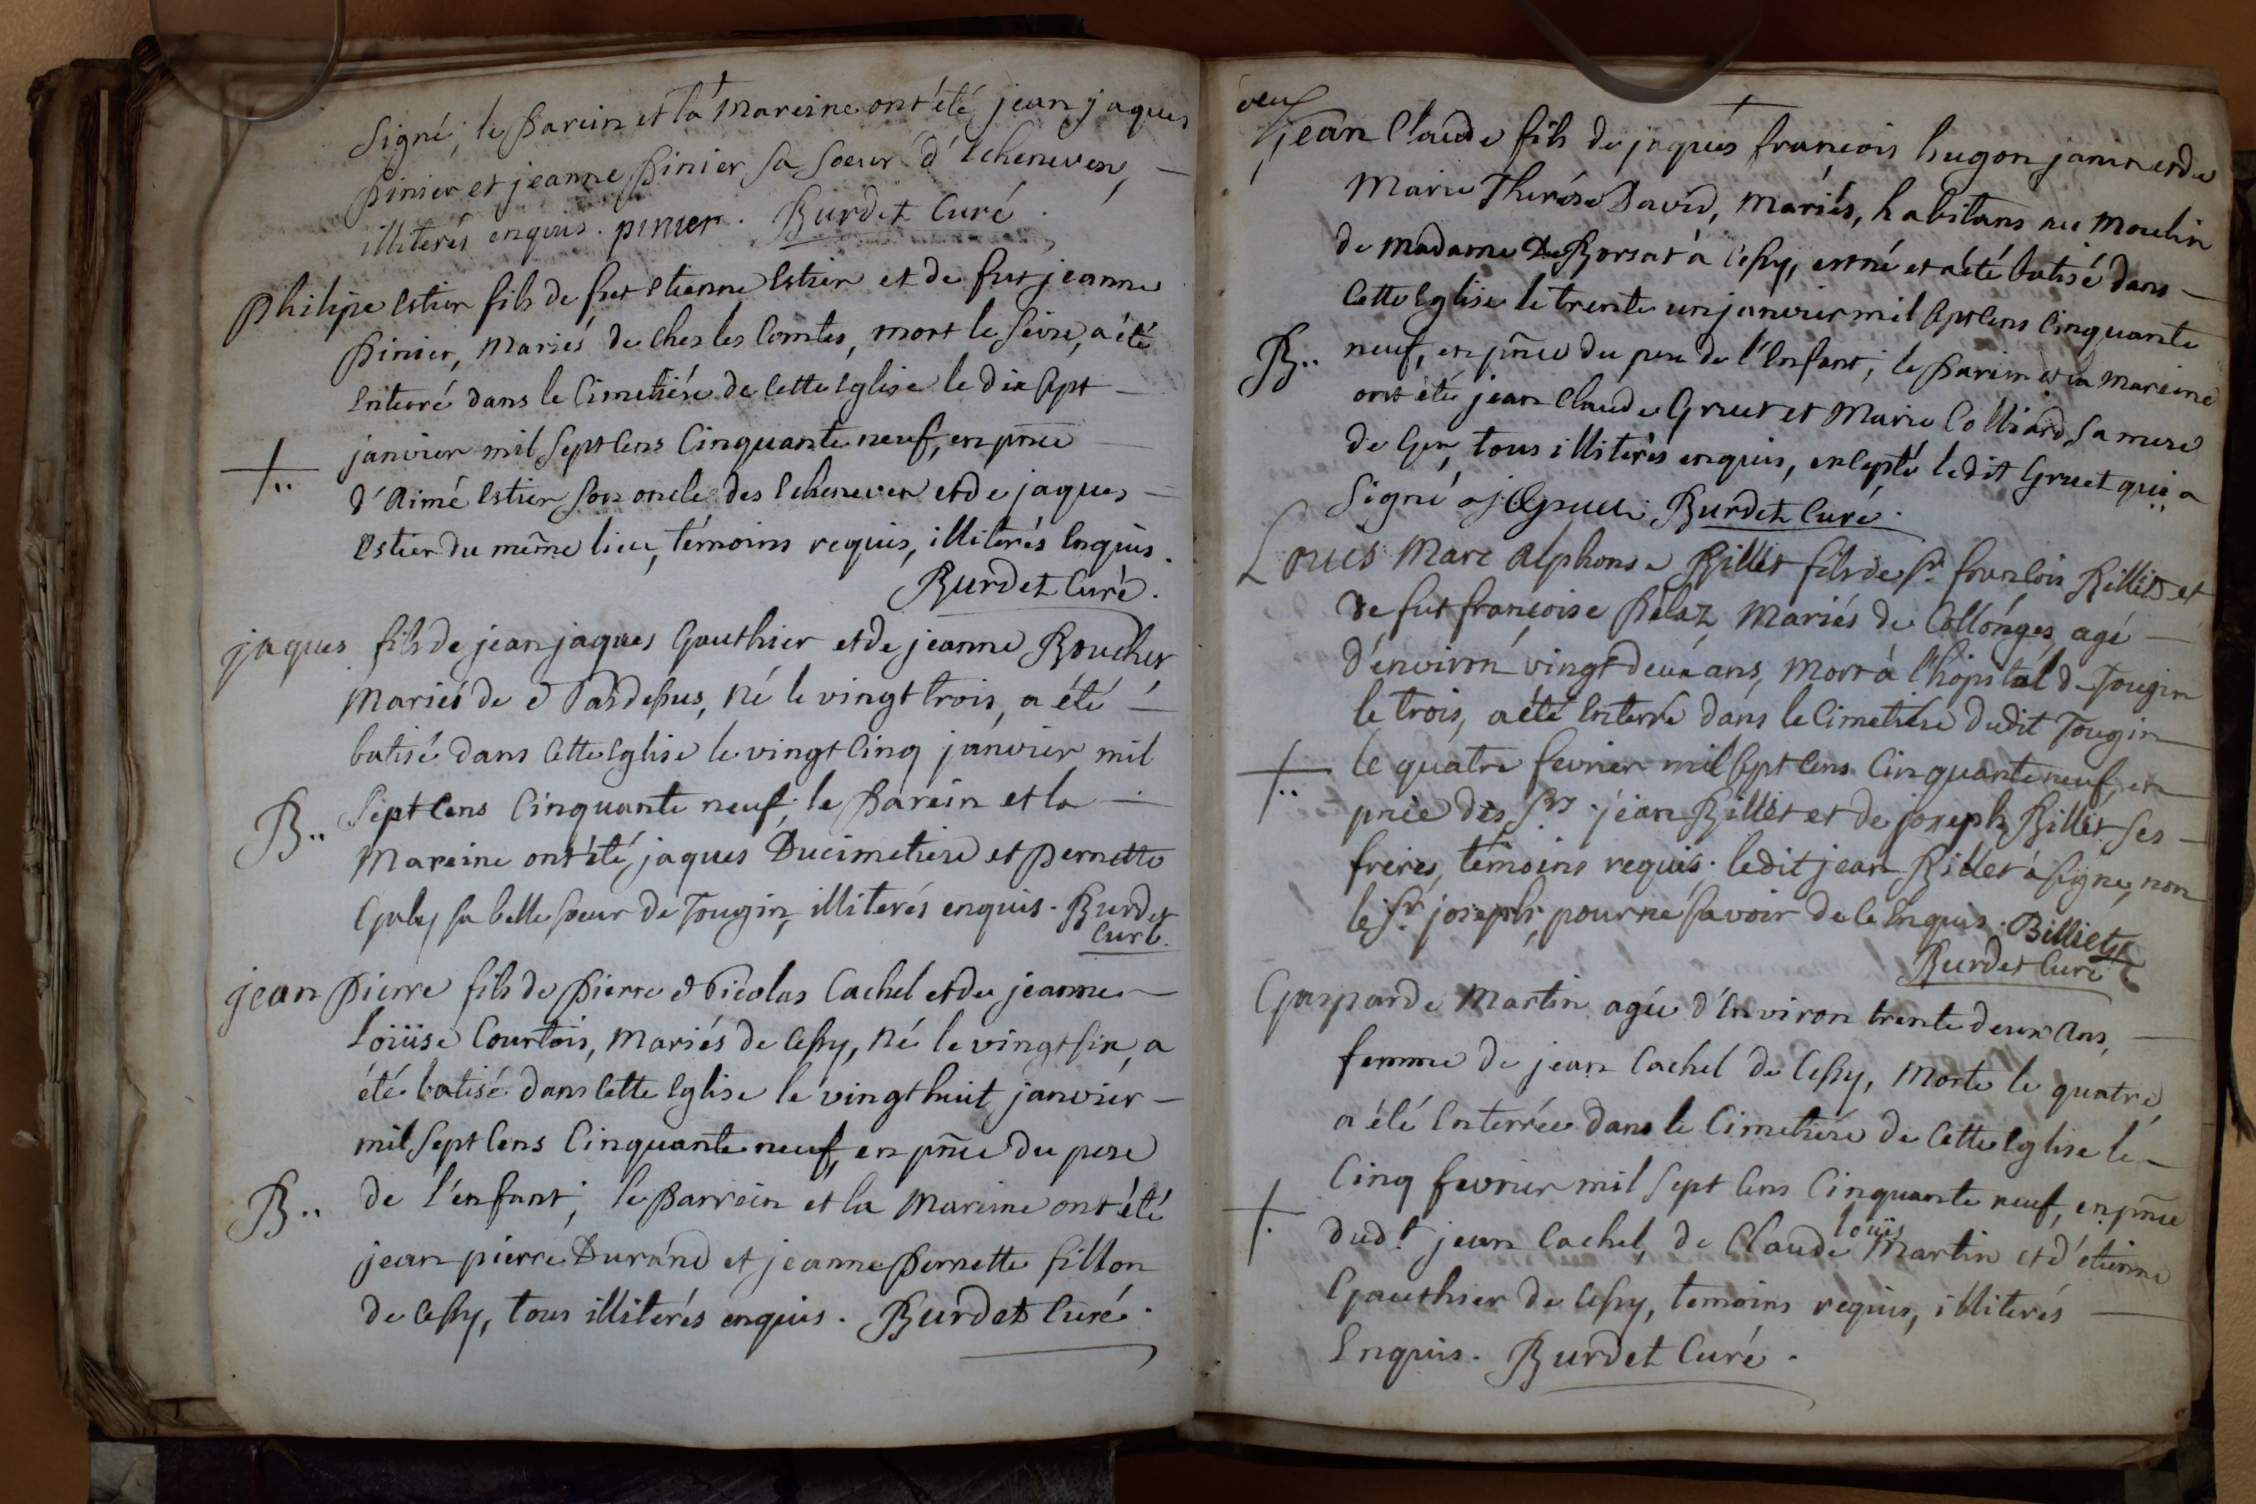 signé; le Parein et la Mareine ont été jean jaques
Pinier et jeanne Pinier sa soeur d'Echenevex, —
illiterés enquis. pinier. Burdet Curé.
Philipe Estier fils de fut Etienne Estier et de fut jeanne
Pinier, Mariés de Ches les Comtes, mort le seize, a été
Enterré dans le Cimetiére de Cette Eglise le dix sept —
janvier mil sept Cens Cinquante neuf, en pñce —
d'Aimé Estier son oncle des Echenevex et de jaques —
Estier du même lieu, témoins requis, illiterés Enquis.
Burdet Curé.
jaques fils de jean jaques Gauthier et de jeanne Boucher
Mariés de Pardessus, Né le vingt trois, a été —
batisé dans Cette Eglise le vingt Cinq janvier mil
B.. Sept Cens Cinquante neuf; le Parein et la —
Mareine ont été jaques Ducimetiere et Pernette
Gaby sa belle soeur de Tougin, illiterés enquis. Burdet
Curé.
jean Pierre fils de Pierre Nicolas Cachel et de jeanne —
Loüise Courtois, Mariés de Cessy, Né le vingt six, a
été batisé dans Cette Eglise le vingt huit janvier —
mil Sept Cens Cinquante neuf, en pñce du pere
B.. de l'enfant; le Parrein et la Mareine ont été
jean pierre Durand et jeanne Pernette fillon
de Cessy, tous illiterés enquis. Burdet Curé.
jean Claude fils de jaques françois hugon janin et de
Marie Therése David, Mariés, habitans au Moulin
de Madame De Borsat à Cessy, est né et a été batisé dans —
Cette Eglise le trente un janvier mil sept Cens Cinquante
B.. neuf, en pñce du pere de l'Enfant; le Parein et la Mareine
ont été jean Claude Gruet et Marie Colliard sa mere
de Gex, tous illiterés enquis, excepté ledit Gruet qui a
signé. Burdet Curé.
Louis Marc Alphonse Billiet fils de Sr. françois Billiet et
de fut françoise Pelaz Mariés de Collonges, agé —
d'environ vingt deux ans, Mort à l'hôpital de Tougin
le trois, a été Enterré dans le Cimetiére dudit Tougin —
le quatre fevrier mil sept Cens Cinquante neuf, en
pñce des Srs. jean Billiet et de joseph Billiet ses —
freres, témoins requis. ledit jean Billiet a signé, non
le Sr. joseph, pour ne savoir de ce Enquis. Billiet
Burdet Curé
Gasparde Martin agée d'Environ trente deux ans, —
femme de jean Cachel de Cessy, Morte le quatre,
a été Enterrée dans le Cimetiére de Cette Eglise le —
Cinq fevrier mil Sept Cens Cinquante neuf, en pñce
dud.t jean Cachel, de Claude Loüis Martin et d'étienne
Gauthier de Cessy, temoins requis, illiterés —
Enquis. Burdet Curé.